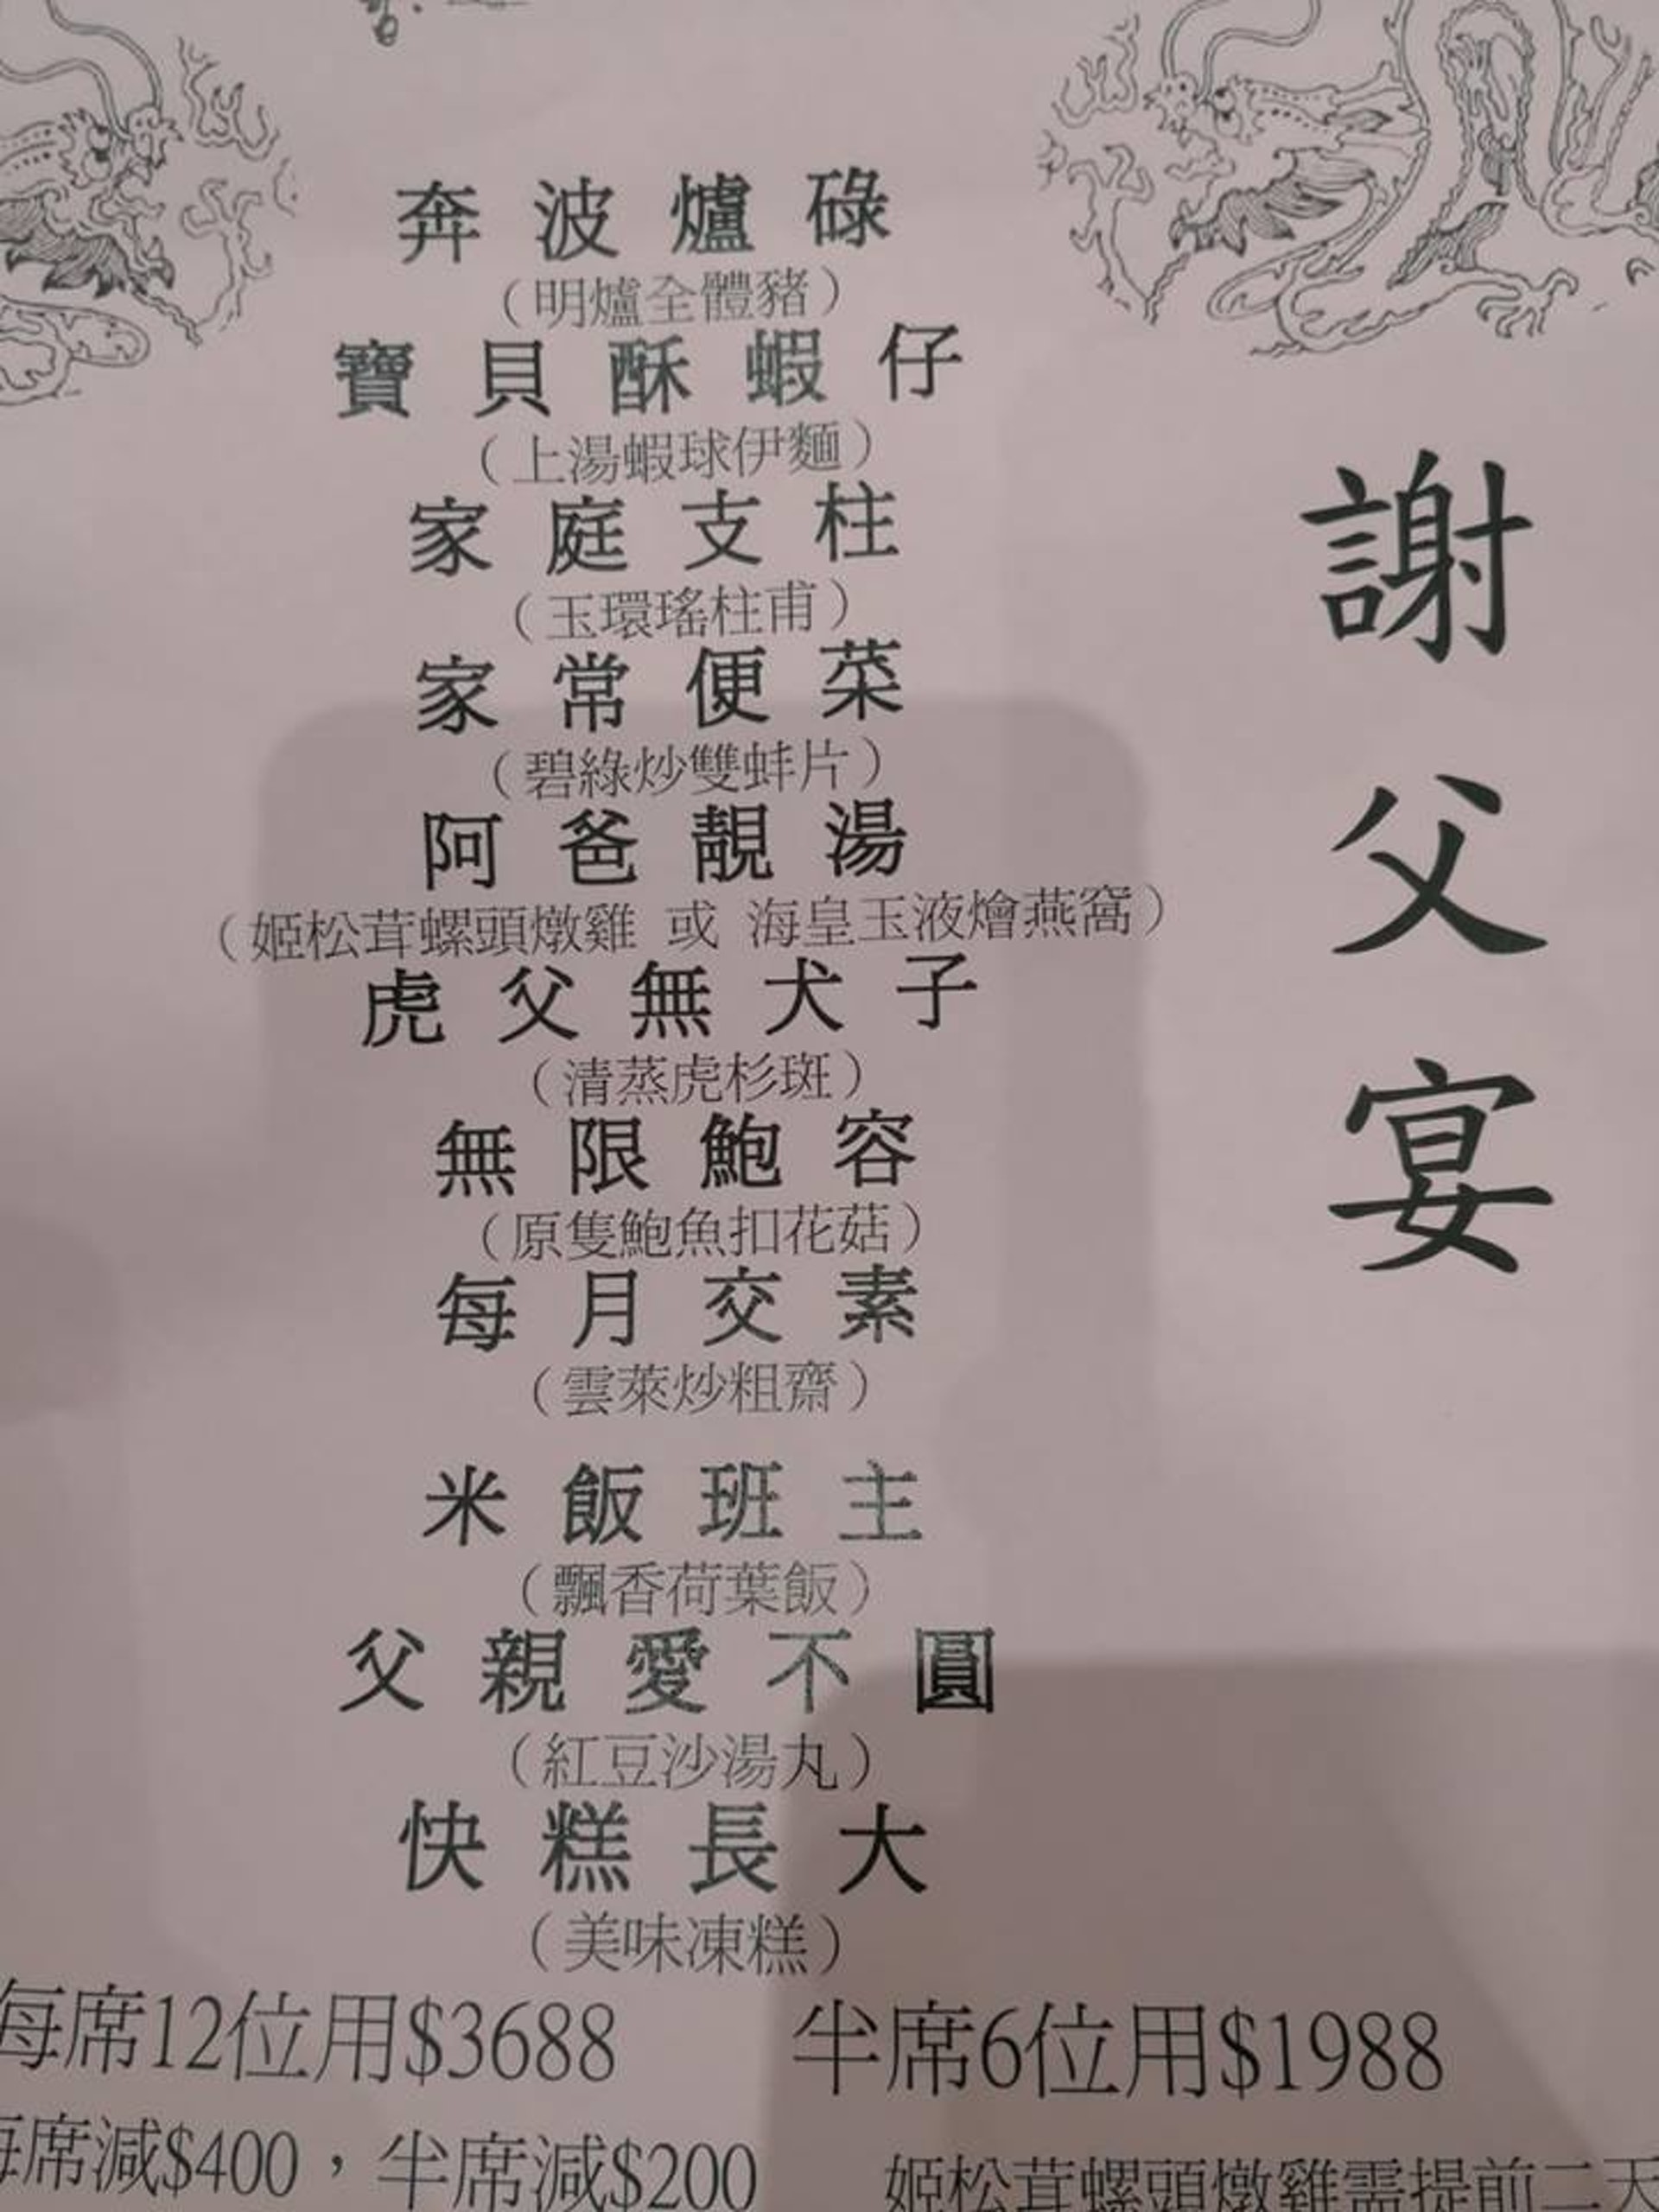 謝父宴
奔波爐碌
（明爐全體豬）
寶貝酥蝦仔
（上湯蝦球伊麵）
家庭支柱
（玉環瑤柱甫）
家常便菜
（碧綠炒雙蚌片）
阿爸靚湯
（姬松茸螺頭燉雞 或 海皇玉液燴燕窩）
虎父無犬子
（清蒸虎杉斑）
無限鮑容
（原隻鮑魚扣花菇）
每月交素
（雲萊炒粗齋）
米飯班主
（飄香荷葉飯）
父親愛不圓
（紅豆沙湯丸）
快糕長大
（美味凍糕）
每席12位用$3688 半席6位用$1988
每席減$400，半席減$200 姬松茸螺頭燉雞需提前二天